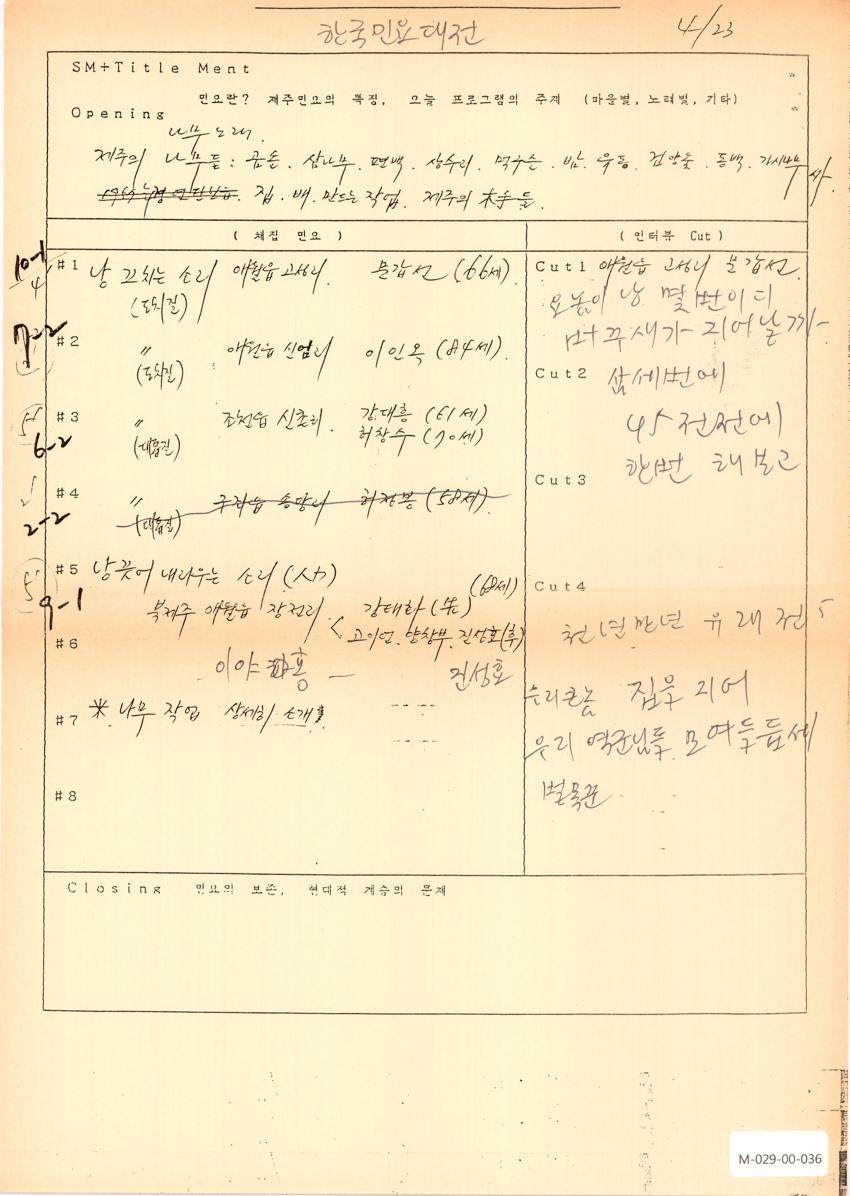 한국민요대전
4/23
SM+Title Ment
민요란? 제주민요의 특징, 오늘 프로그램의 주제 (마을별, 노래별, 기타)
Opening
나무노래.
제주의 나무들 : 곰솔. 삼나무. 편백. 상수리. 먹구슬. 밤. 유동. 검양옻. 동백. 가시나무
집. 배. 만드는 작업. 제주의 木手들.
( 채집 민요 )
( 인터뷰 Cut )
10-1
4
#1 낭 끄치는 소리 애월읍 고성리 문갑선 (66세).
(도치질)
7-22
#2 〃 애월읍 신엄리 이인옥 (84세).
(도치질)
5
6-2
#3 〃 조천읍 신촌리. 강대흥 (61세)
(대톱질) 허창수 (70세)
2-2
#4 〃 구좌읍 송당리 허정봉 (58세)
(대톱질)
5
9-1
#5 낭끗어 내리우는 소리
북제주 애월읍 장전리. 강태하 (先) (68세)
고이언. 양창부. 진성호(후)
#6
이야 홍 — 진성호
#7 ※ 나무 작업 상세히 소개
#8
Cut1 애월읍 고성리 문갑선.
요놈이 낭 몇번이디
버꾸새가 지어날까
Cut2 삼세번에
45전전에
한번 해보고
Cut3
Cut4
천년만년 유래전
우리큰놈 집을 지어
우리 역군님들 모여듭세
벌목꾼
Closing 민요의 보존, 현대적 계승의 문제
M-029-00-036